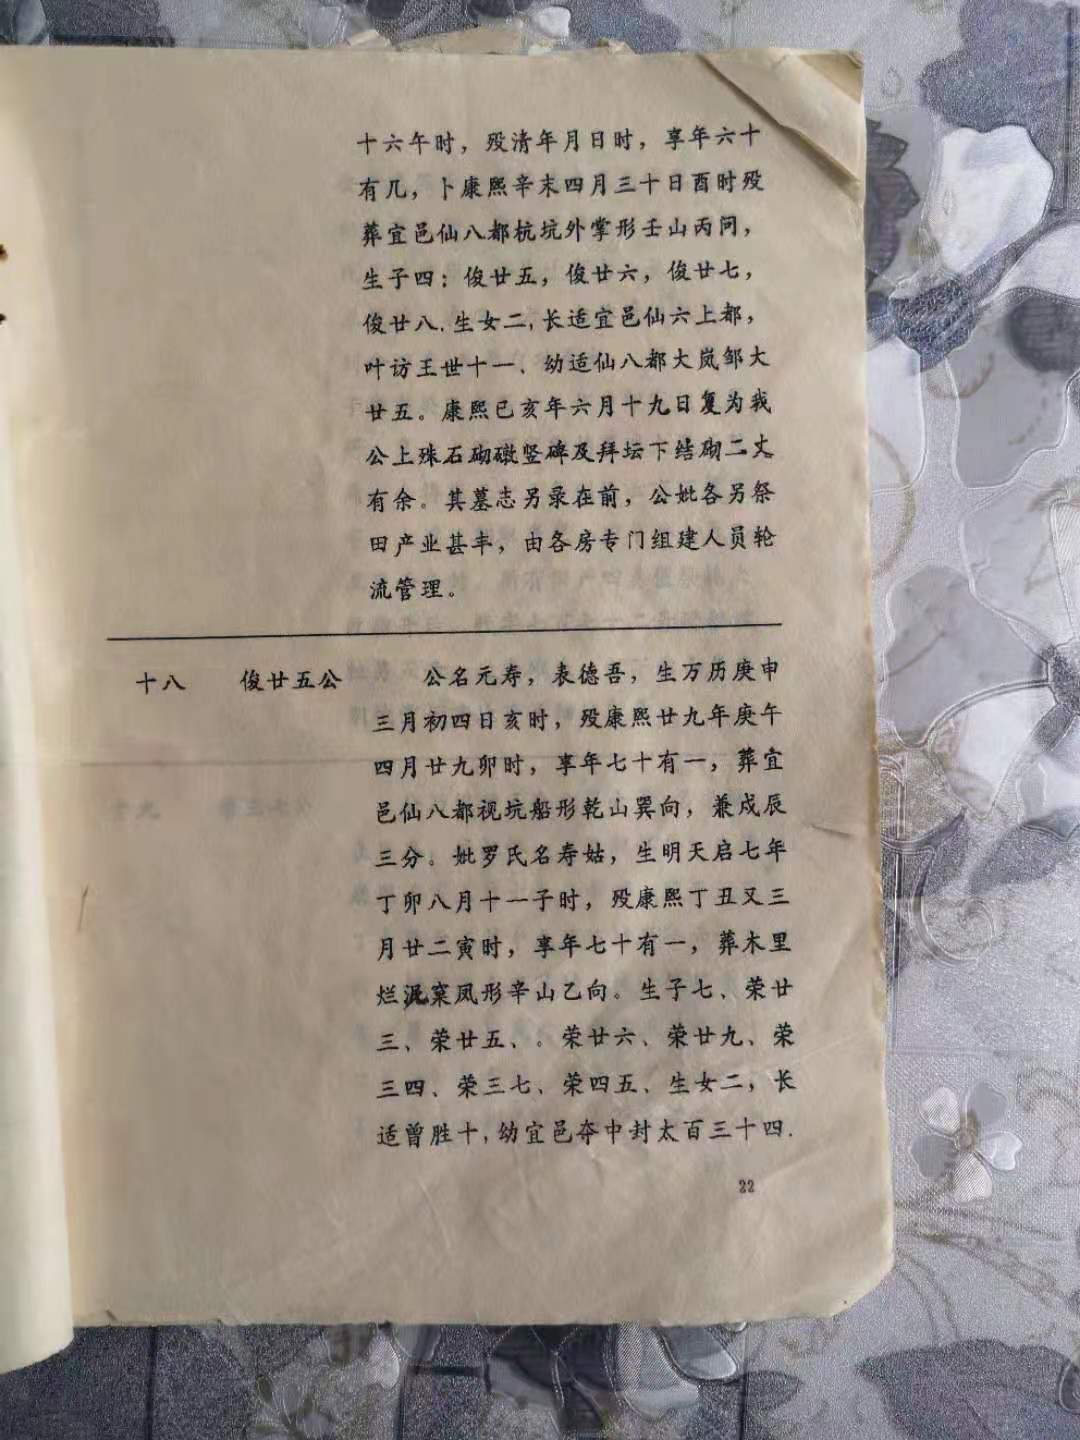 十六午时，殁清年月日时，享年六十
有几，卜康熙辛末四月三十日酉时殁
葬宜邑仙八都杭坑外掌形壬山丙问，
生子四：俊廿五，俊廿六，俊廿七，
俊廿八.生女二,长适宜邑仙六上都，
叶访王世十一、幼适仙八都大岚邹大
廿五。康熙已亥年六月十九日复为我
公上殊石砌礅竖碑及拜坛下结砌二丈
有余。其墓志另录在前，公妣各另祭
田产业甚丰，由各房专门组建人员轮
流管理。
十八 俊廿五公 公名元寿，表德吾，生万历庚申
三月初四日亥时，殁康熙廿九年庚午
四月廿九卯时，享年七十有一，葬宜
邑仙八都视坑船形乾山巽向，兼戍辰
三分。妣罗氏名寿姑，生明天启七年
丁卯八月十一子时，殁康熙丁丑又三
月廿二寅时，享年七十有一，葬木里
烂泥窠凤形辛山乙向。生子七、荣廿
三、荣廿五、。荣廿六、荣廿九、荣
三四、荣三七、荣四五、生女二，长
适曾胜十,幼宜邑夺中封太百三十四.
22